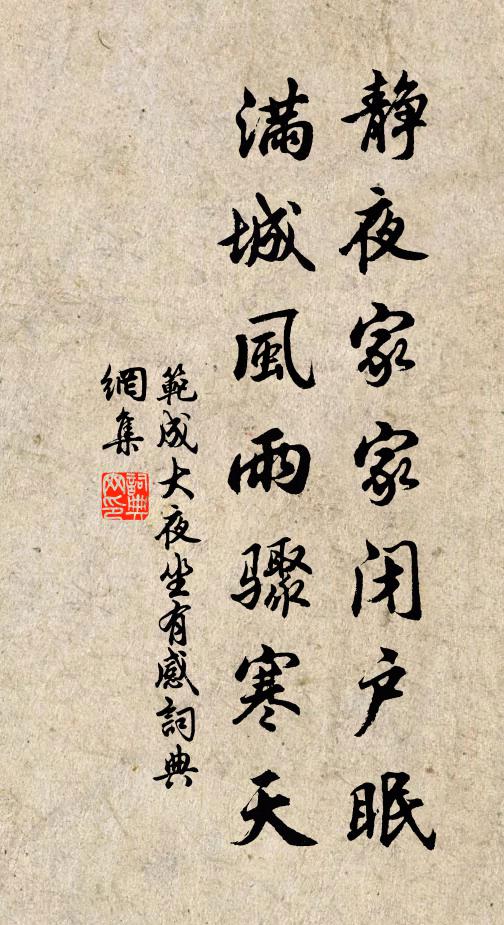 静夜家家闭户眠
滿城風雨驟寒天
範成大夜坐有感詞典
網集
詞典
网印